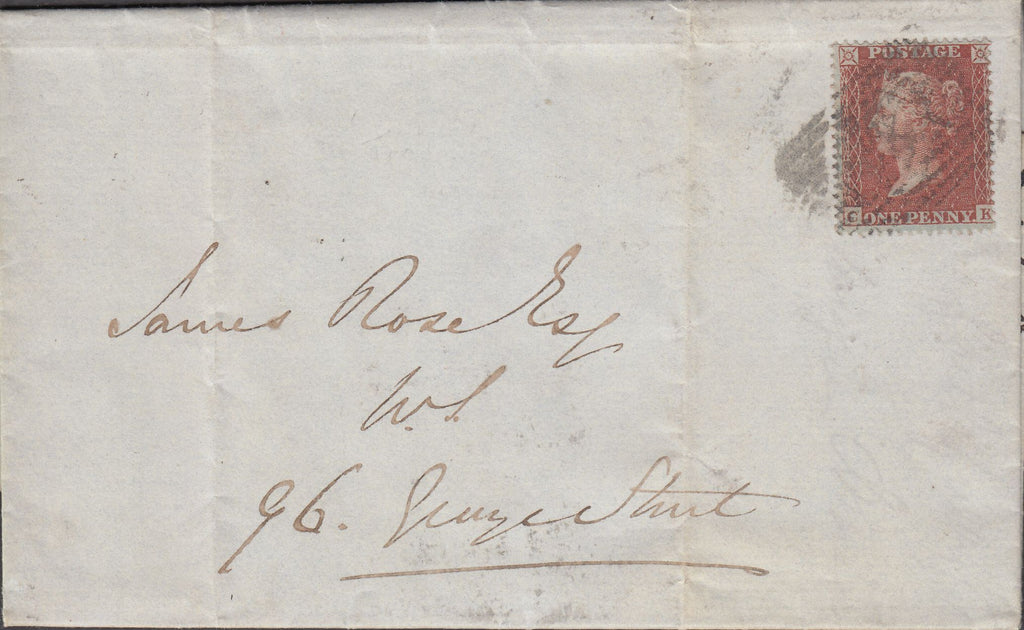 POSTAGE
G ONE PENNY K
James Rose Esq
W.S.
96. George Street